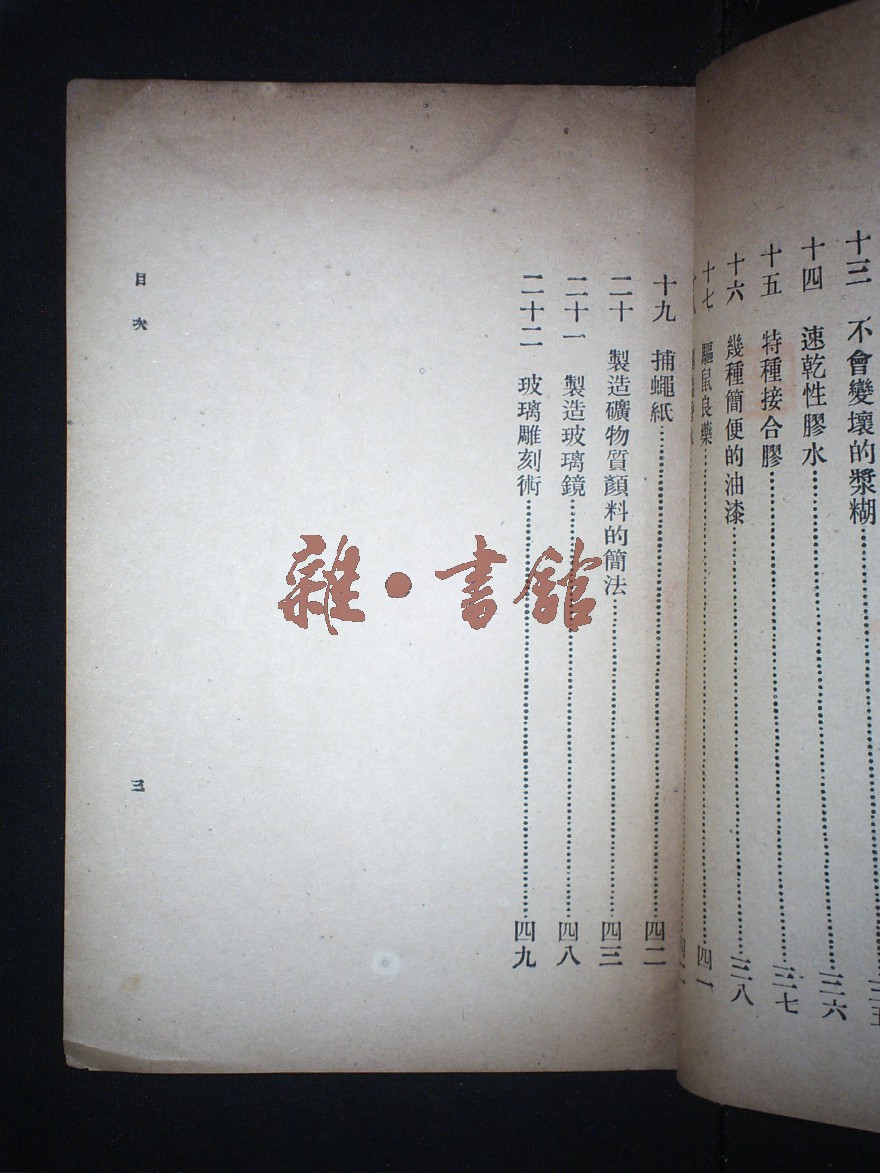 十三 不會變壞的漿糊 三五
十四 速乾性膠水 三六
十五 特種接合膠 三七
十六 幾種簡便的油漆 三八
十七 驅鼠良藥 四一
十九 捕蠅紙 四二
二十 製造礦物質顏料的簡法 四三
二十一 製造玻璃鏡 四八
二十二 玻璃雕刻術 四九
目次 三
雜·書館